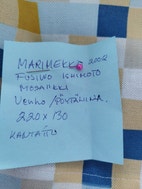 MARIMEKKO 2002
FUJIWO ISHIMOTO
MOSAIIKKI
VERHO / PÖYTÄLIINA
220 x 130
KANTATTU